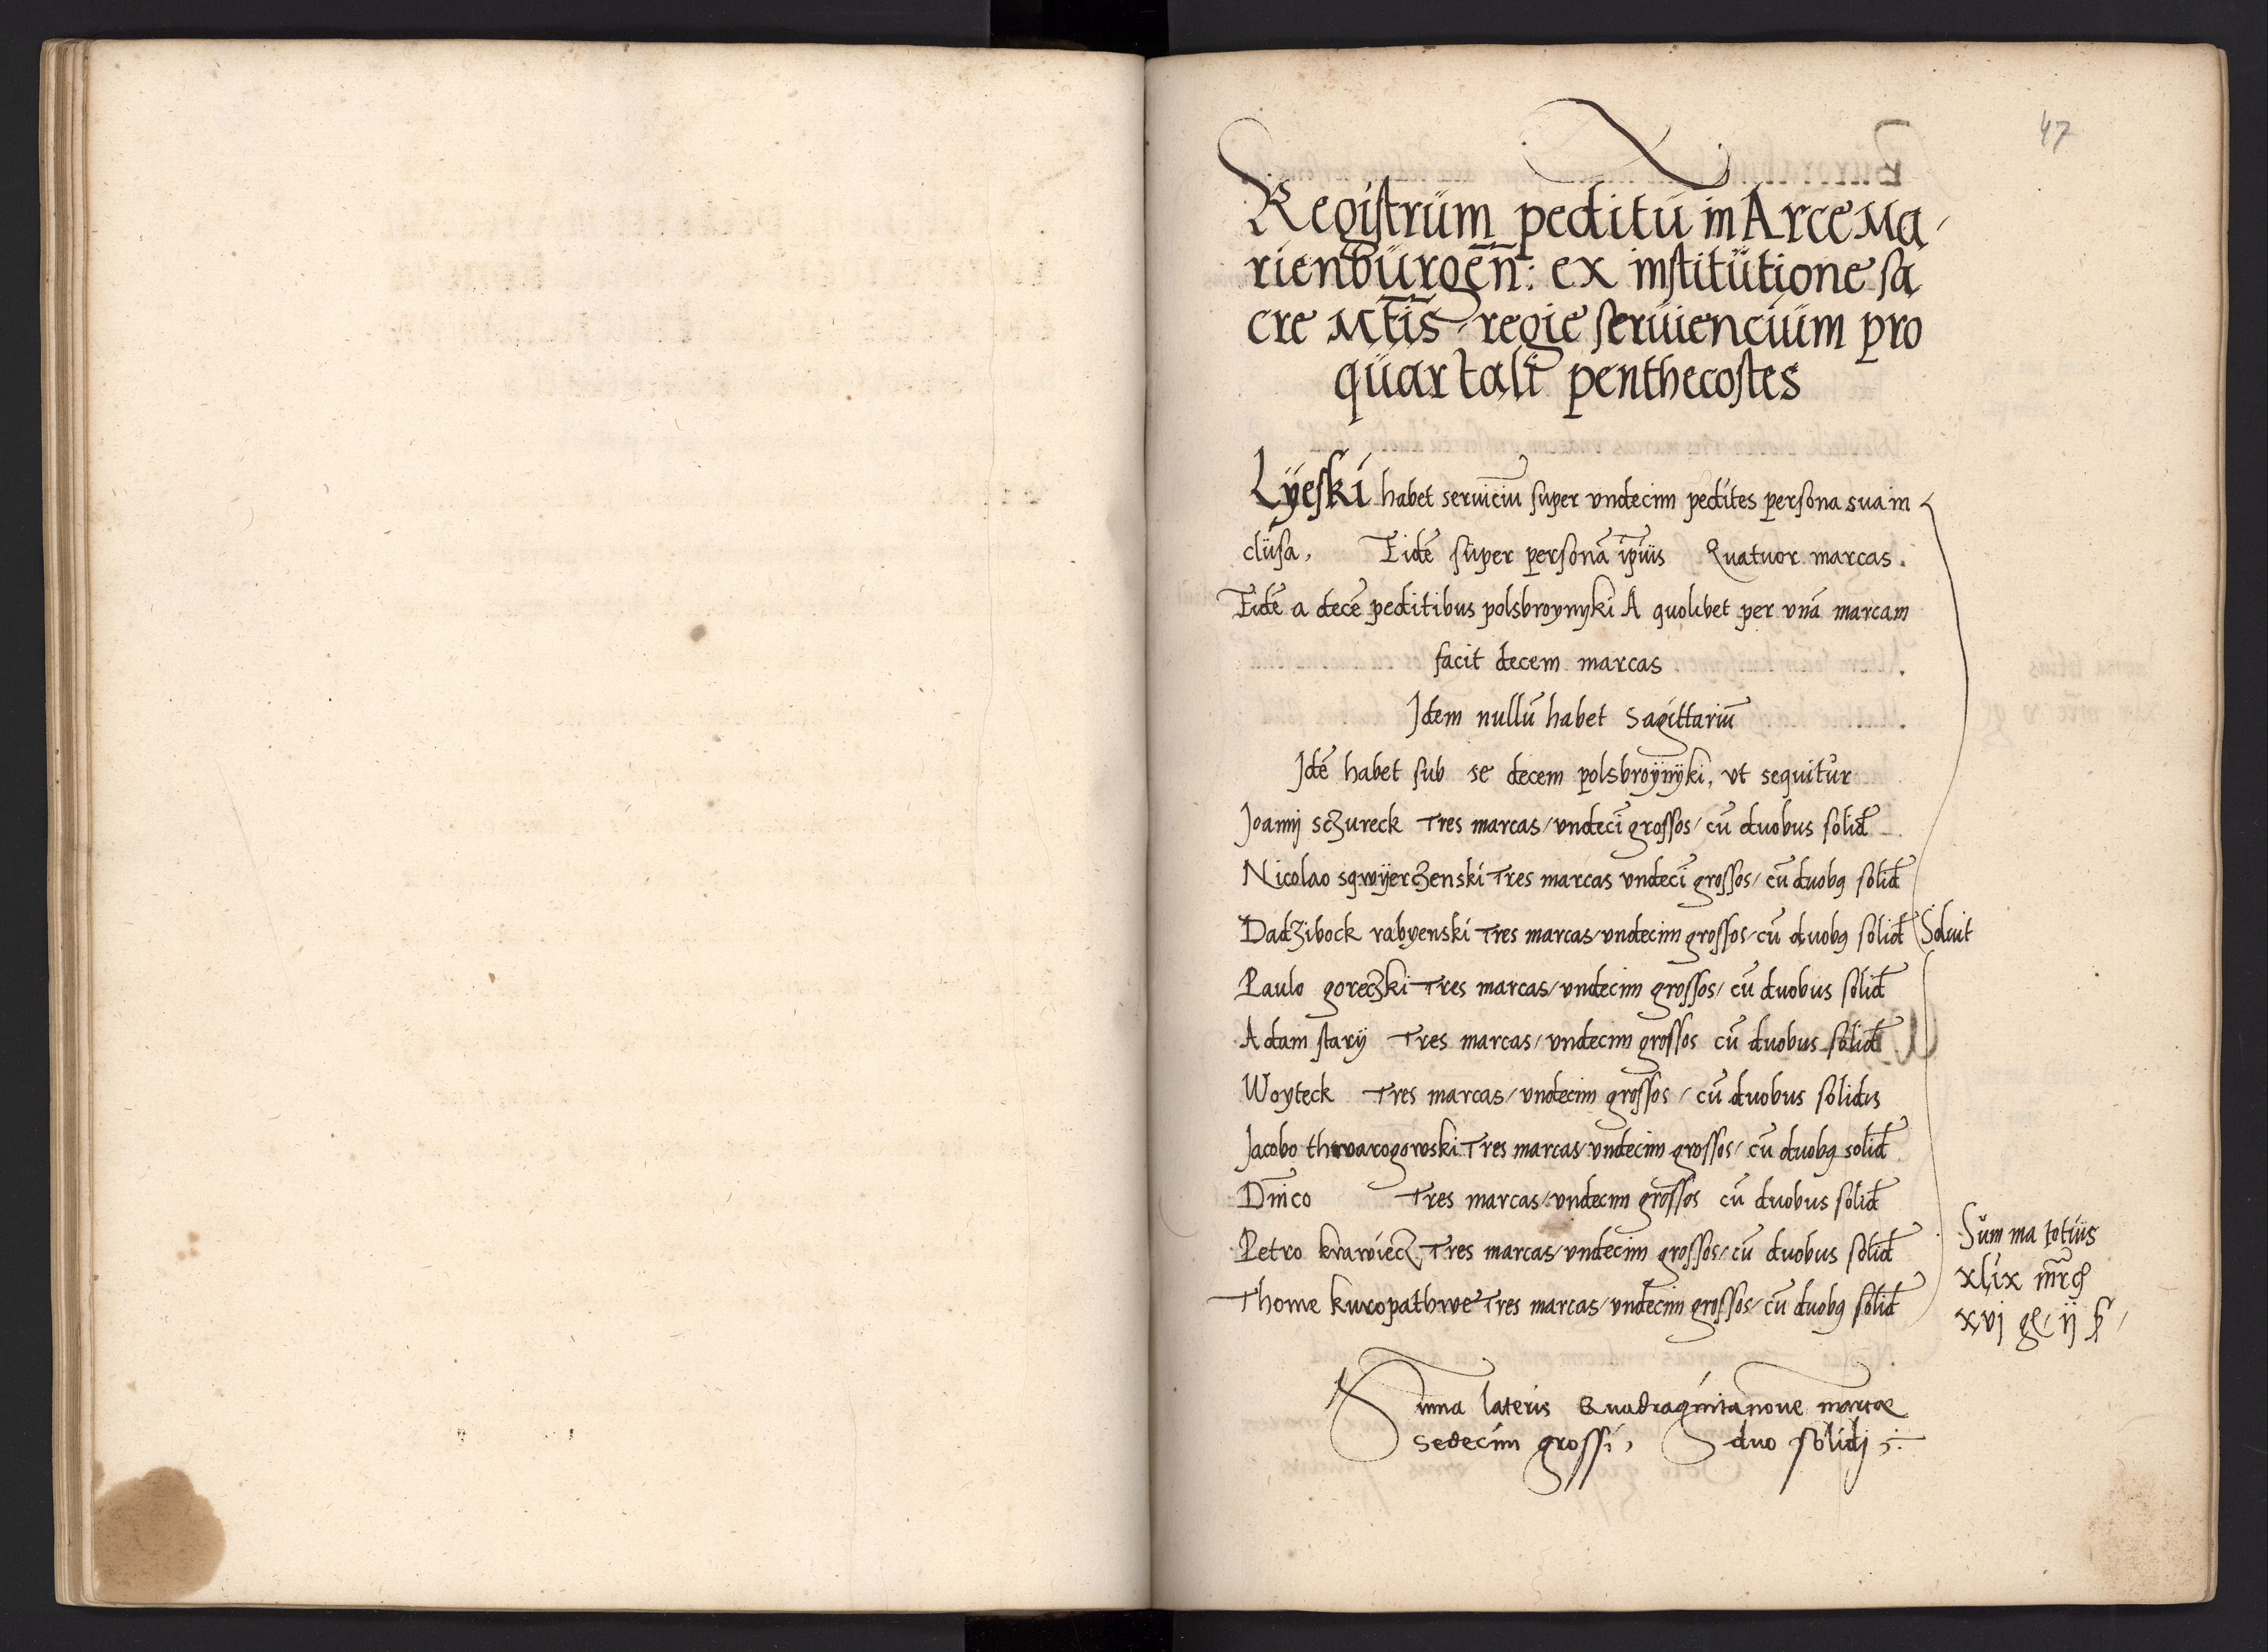 47
Registrum peditū in Arce Ma
rienburgēn: ex institutione sa
cre Mtis regie serviencium pro
quartali penthecostes
Lÿeski habet serviciū super undecim pedites persona sua in
clusa, Eidē super personā ipius Quatuor marcas.
Eidē a decē peditibus polsbroynyki A quolibet per unā marcam
facit decem marcas
Idem nullū habet Sagittariū
Idē habet sub se decem polsbroÿnÿki, ut sequitur
Joanni sczureck Tres marcas / undeci grossos / cū duobus solid
Nicolao sgwÿerczenski Tres marcas undeci grossos / cū duobꝰ solid
Dadzibock rabyenski Tres marcas / undecim grossos / cū duobꝰ solid Soluit
Paulo goreczki Tres marcas / undecim grossos / cū duobus solid
Adam starÿ Tres marcas / undecim grossos cū duobus solid
Woyteck Tres marcas / undecim grossos / cū duobus solidis
Jacobo thwarogowski Tres marcas / undecim grossos / cū duobꝰ solid
Dnīco Tres marcas / undecim grossos cū duobus solid
Petro krawiecz Tres marcas / undecim grossos / cū duobus solid
Thome kuropathwe Tres marcas / undecim grossos / cū duobꝰ solid
Summa totius
xlix mrc
xvj g / ij ß /
Suma lateris Quadragintanove marcae
sedecim grossi, duo solidj